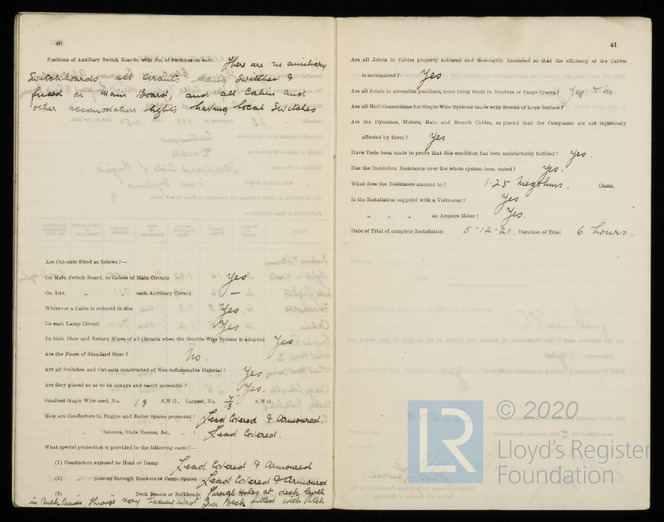 40
Positions of Auxiliary Switch Boards, with No. of Switches on each There are no auxiliary
Switchboards, all circuits being Switched &
fused on Main Board, and all Cabin and
other accomodation lights having local Switches
Are Cut-outs fitted as follows?—
On Main Switch Board, to Cables of Main Circuits Yes
On Aux. " each Auxiliary Circuit —
Wherever a Cable is reduced in size Yes
To each Lamp Circuit Yes
To both Flow and Return Wires of all Circuits when the Double-Wire System is adopted Yes
Are the Fuses of Standard Sizes? No.
Are all Switches and Cut-outs constructed of Non-inflammable Material? Yes.
Are they placed so as to be always and easily accessible? Yes.
Smallest Single Wire used, No. 18 S.W.G., Largest, No. 7/18 S.W.G.
How are Conductors in Engine and Boiler Spaces protected? Lead Covered & Armoured
" Saloons, State Rooms, &c., " ? Lead Covered.
What special protection is provided in the following cases?—
(1) Conductors exposed to Heat or Damp Lead Covered & Armoured
(2) " passing through Bunkers or Cargo Spaces Lead Covered & Armoured
(3) " Deck Beams or Bulkheads through Holes at deck level
in Bulkheads, through Deck fitted with Pitch
41
Are all Joints in Cables properly soldered and thoroughly insulated so that the efficiency of the Cables
is unimpaired? Yes
Are all Joints in accessible positions, none being made in Bunkers or Cargo Spaces? Yes & No
Are all Hull Connections for Single Wire Systems made with Screws of large Surface?
Are the Dynamos, Motors, Main and Branch Cables, so placed that the Compasses are not injuriously
affected by them? Yes
Have Tests been made to prove that this condition has been satisfactorily fulfilled? Yes.
Has the Insulation Resistance over the whole system been tested? Yes.
What does the Resistance amount to? 1·25 Megohms. Ohms.
Is the Installation supplied with a Voltmeter? Yes
" " " an Ampere Meter? Yes.
Date of Trial of complete Installation 5-12-21. Duration of Trial 6 hours.
LR
© 2020
Lloyd's Register
Foundation